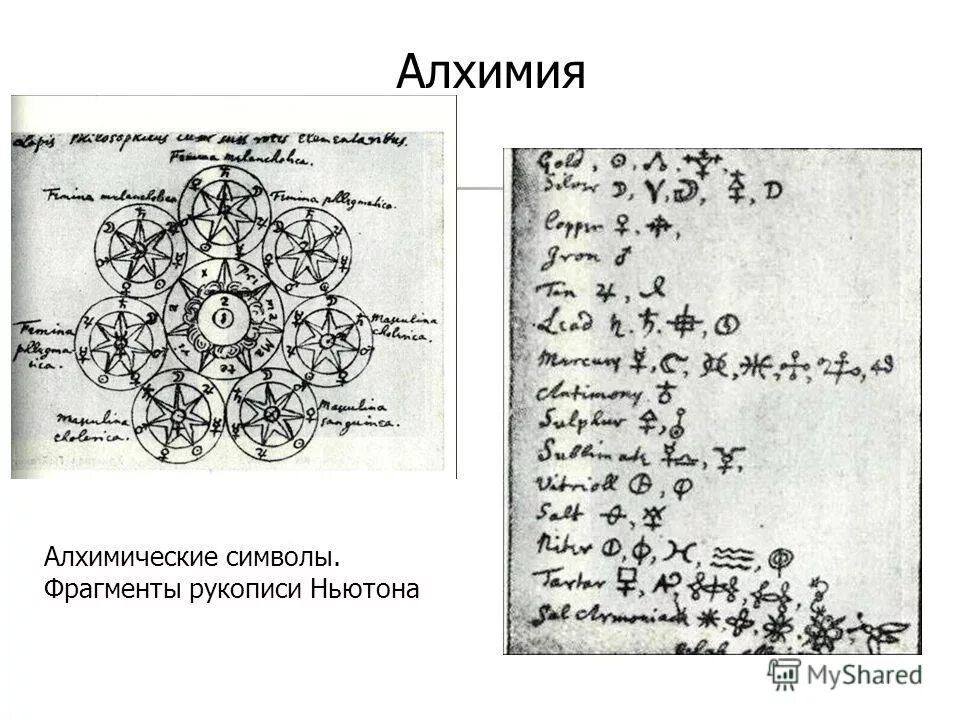 Алхимия
Lapis Philosophicus cum suis rotis Elementaribus.
Femina melancholica.
Femina melancholica
Femina phlegmatica.
Femina
phlegma
tica.
Masculina
cholerica.
Masculina
cholerica.
Masculina
sanguinea.
Gold, ☉
Silver ☽
Copper ♀
Iron ♂
Tin ♃
Lead ♄
Mercury ☿
Antimony ♁
Sulphur
Sublimate
Vitrioll
Salt
Niter
Tartar
Sal Armoniack
Алхимические символы.
Фрагменты рукописи Ньютона
MyShared